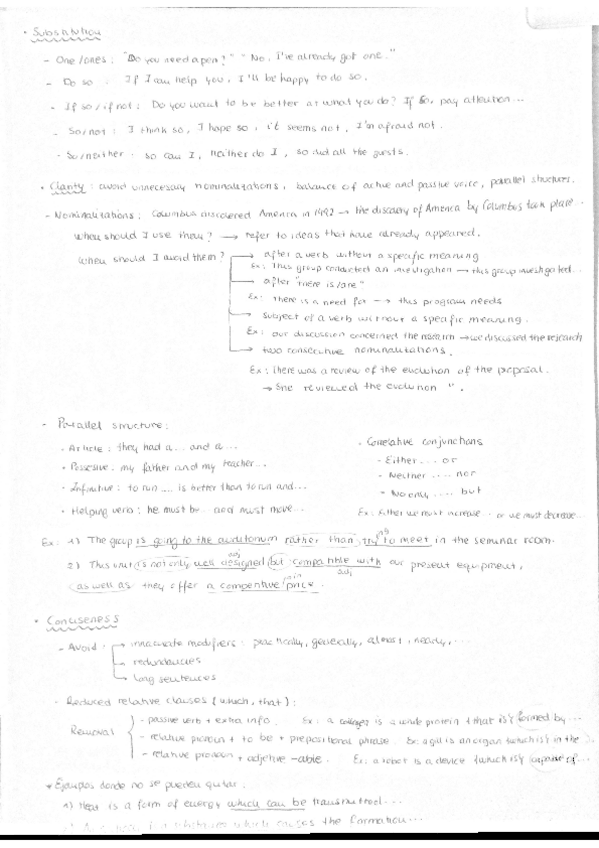 · Substitution
- One/ones: "Do you need a pen?" "No, I've already got one."
- Do so: If I can help you, I'll be happy to do so.
- If so/if not: Do you want to be better at what you do? If so, pay attention...
- So/not: I think so, I hope so, it seems not, I'm afraid not.
- So/neither: so can I, neither do I, so did all the guests.
· Clarity: avoid unnecesary nominalizations, balance of active and passive voice, parallel structures.
- Nominalizations: Columbus discovered America in 1492 → the discovery of America by Columbus took place...
When should I use them? → refer to ideas that have already appeared.
When should I avoid them? → after a verb without a specific meaning
Ex: This group conducted an investigation → this group investigated...
→ after "there is/are"
Ex: There is a need for → this program needs
→ subject of a verb without a specific meaning.
Ex: our discussion concerned the research → we discussed the research
→ two consecutive nominalizations.
Ex: There was a review of the evolution of the proposal.
→ She reviewed the evolution ".
- Parallel structure:
· Article: they had a... and a...
· Possesive: my father and my teacher...
· Infinitive: to run ... is better than to run and...
· Helping verb: he must be... and must move...
· Correlative conjunctions
- Either .... or
- Neither .... nor
- No only .... but
Ex: Either we must increase... or we must decrease...
Ex: 1) The group is going to the auditorium rather than to meet in the seminar room.
2) This unit is not only well designed but compatible with our present equipment,
adj
adj
as well as they offer a competitive price.
· Conciseness
- Avoid: → innacurate modifiers: practically, generally, almost, nearly, ...
→ redundancies
→ long sentences
- Reduced relative clauses (which, that):
Removal
- passive verb + extra info. Ex: a is a protein (that is) formed by...
- relative pronoun + to be + prepositional phrase. Ex: a gill is an organ (which is) in the
- relative pronoun + adjetive -able. Ex: a robot is a device (which is) capable of...
* Ejemplos donde no se pueden quitar:
1) Heat is a form of energy which can be transmitted...
which causes the formation...